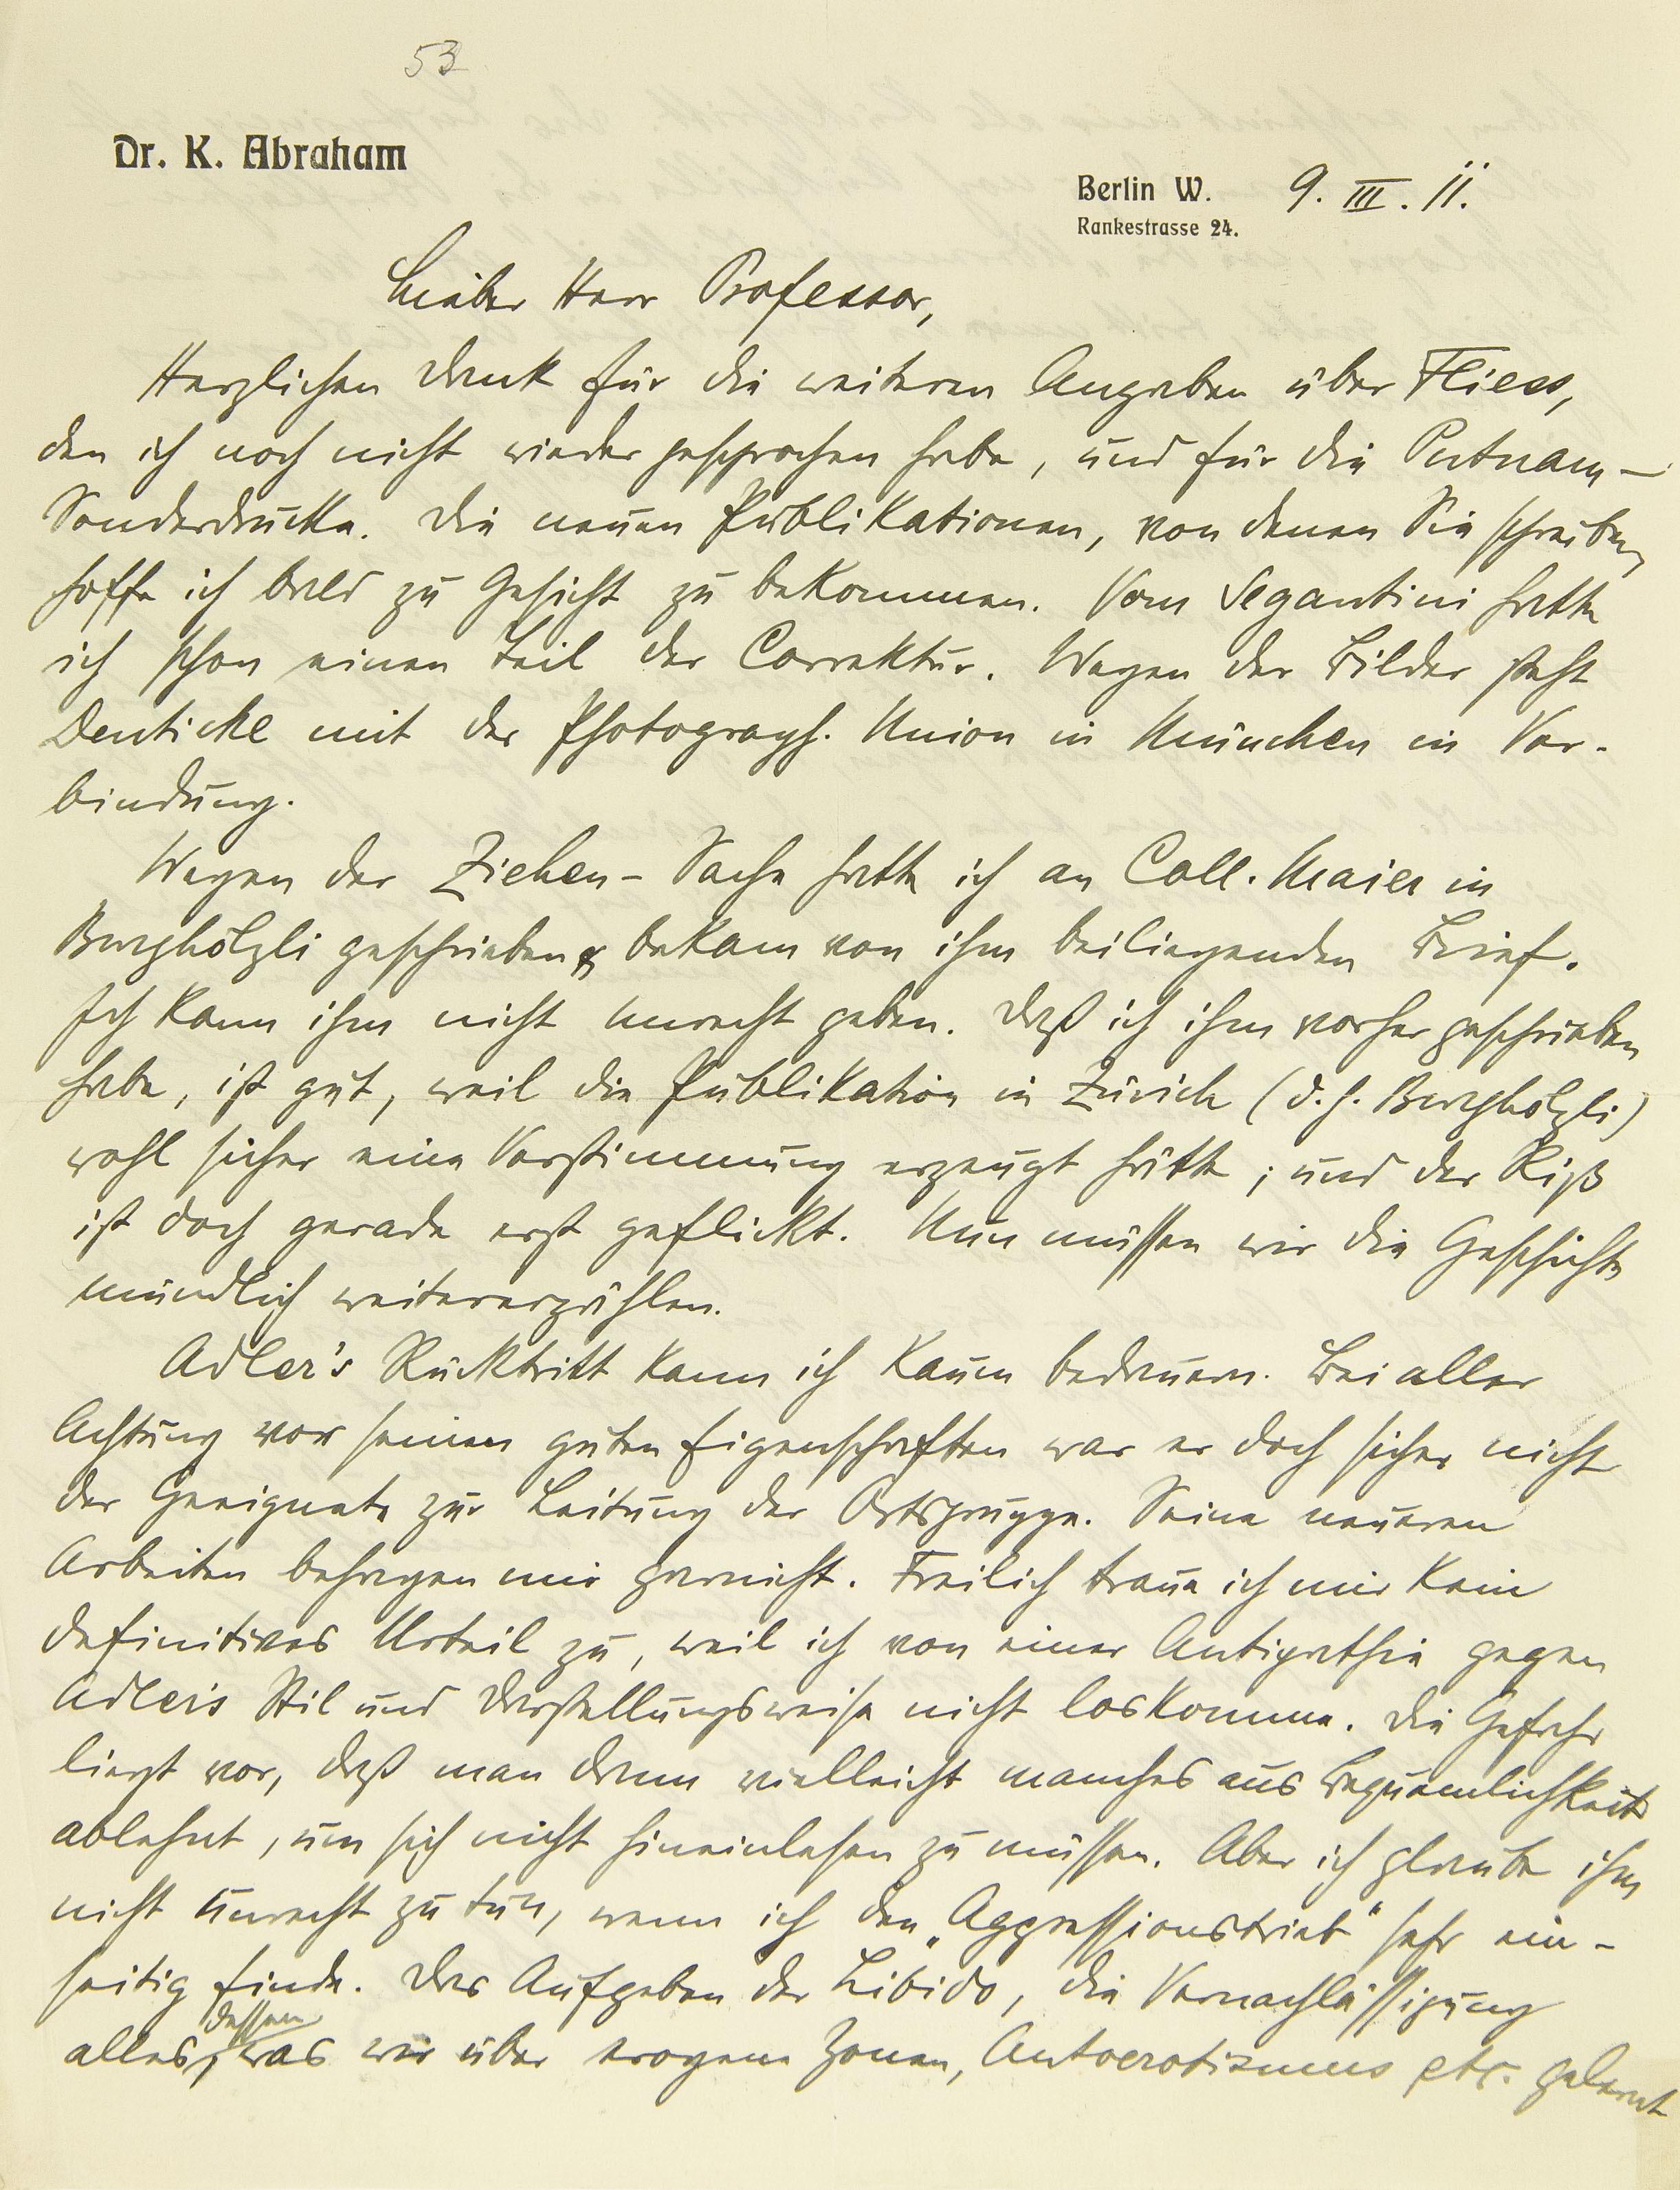 53
Dr. K. Abraham
Berlin W. 9. III. 11.
Rankestrasse 24.
Lieber Herr Professor,
Herzlichen Dank für die weiteren Angaben über Fliess,
den ich noch nicht wieder gesprochen habe, und für die Putnam-
Sonderdrucke. Die neuen Publikationen, von denen Sie schreiben,
hoffe ich bald zu Gesicht zu bekommen. Vom Segantini hatte
ich schon einen Teil der Correktur. Wegen der Bilder steht
Deuticke mit der Photograph. Union in München in Ver-
bindung.
Wegen der Ziehen-Sache hatte ich an Coll. Maier in
Burghölzli geschrieben & bekam von ihm beiliegenden Brief.
Ich kann ihm nicht unrecht geben. Daß ich ihm vorher geschrieben
habe, ist gut, weil die Publikation in Zürich (d. h. Burghölzli)
wohl sicher eine Verstimmung erzeugt hätte; und der Riß
ist doch gerade erst geflickt. Nun müssen wir die Geschichte
mündlich weitererzählen.
Adler's Rücktritt kann ich kaum bedauern. Bei aller
Achtung vor seinen guten Eigenschaften war er doch sicher nicht
der Geeignete zur Leitung der Ortsgruppe. Seine neueren
Arbeiten behagen mir garnicht. Freilich traue ich mir kein
definitives Urteil zu, weil ich von einer Antipathie gegen
Adler's Stil und Darstellungsweise nicht loskomme. Die Gefahr
liegt vor, daß man dann vielleicht manches aus Bequemlichkeit
ablehnt, um sich nicht hineinlesen zu müssen. Aber ich glaube ihm
nicht unrecht zu tun, wenn ich den „Aggressionstrieb“ sehr ein-
seitig finde. Das Aufgeben der Libido, die Vernachlässigung
dessen
alles, was wir über erogene Zonen, Autoerotismus etc. gelernt